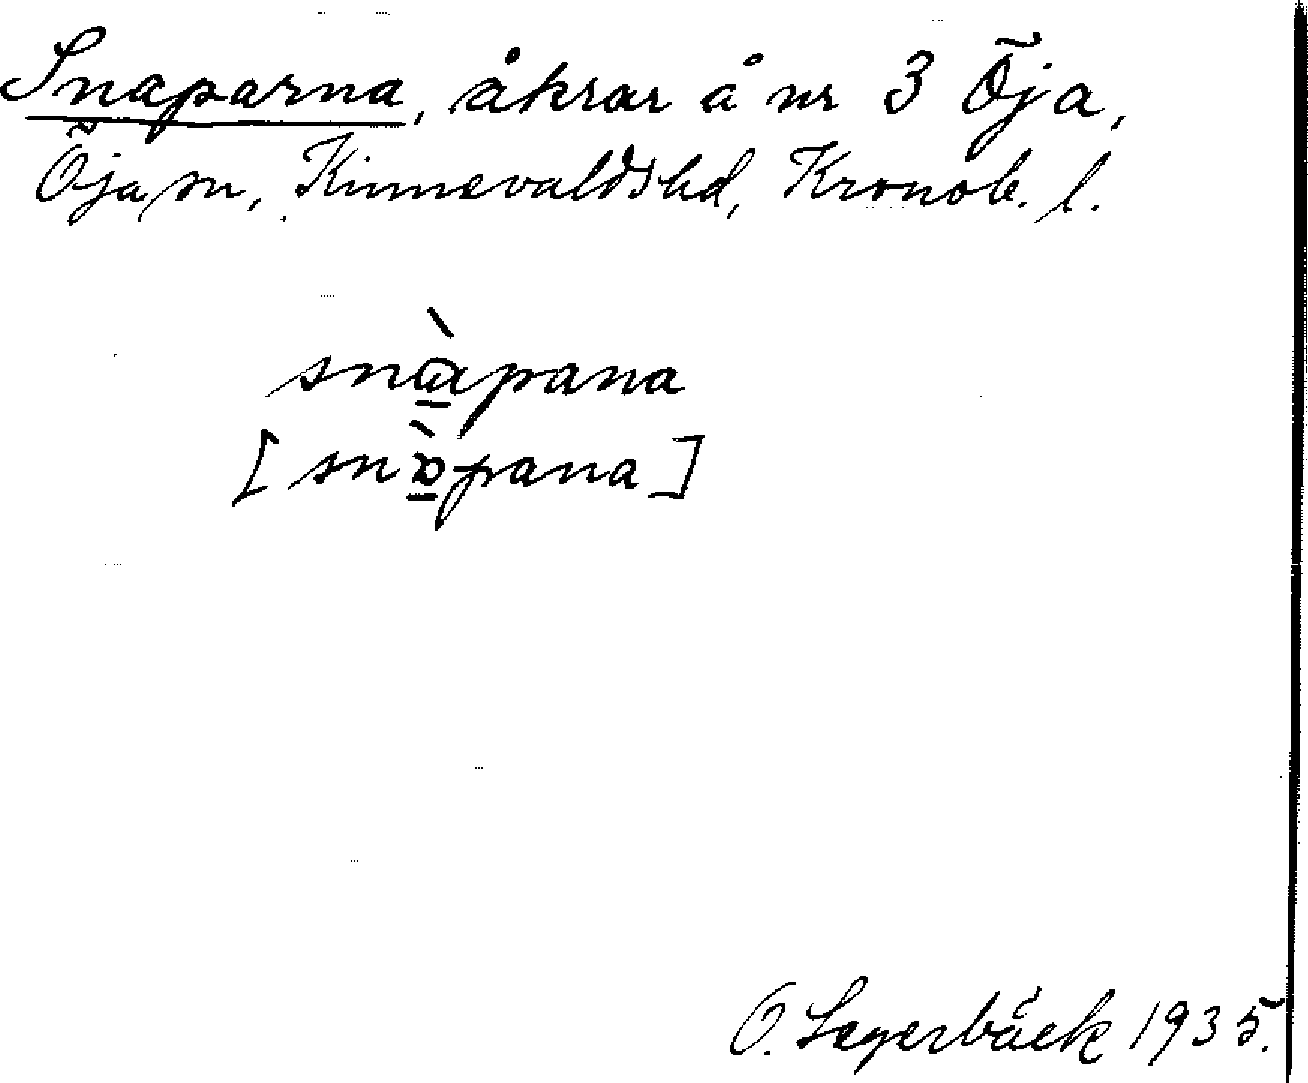 Snaparna, åkrar å nr 3 Öja,
Öja sn, Kinnevalds hd, Kronob. l.
snàpana
[snàpana]
O. Lagerbäck 1935.